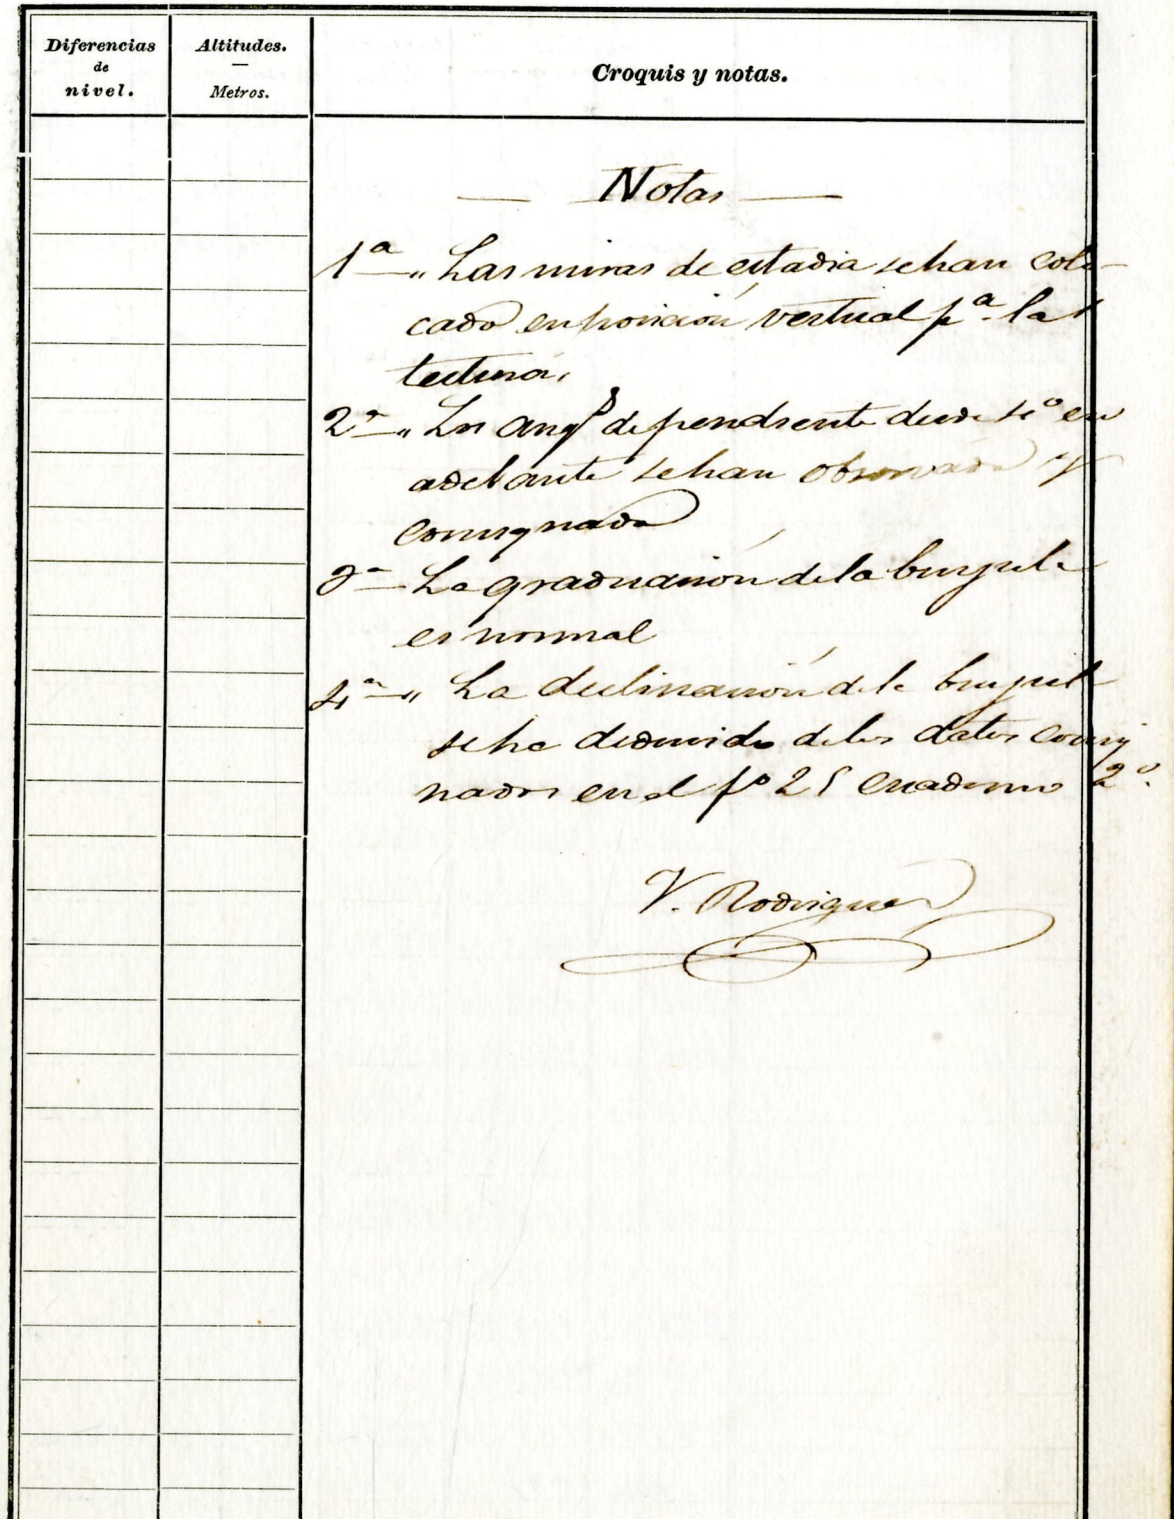 Diferencias
de
nivel.
Altitudes.
—
Metros.
Croquis y notas.
Notas
1ª—„ Las miras de estadia se han colo-
cado en posición vertical pª. la
lectura.
2ª—„ Los angs de pendiente desde 4º en
adelante se han observado y
consignado
3ª— La graduación de la brujula
es normal
4ª—„ La declinación de la brujula
se ha deducido de los datos consig
nados en el fº 25 cuaderno 2º.
V. Rodriguez